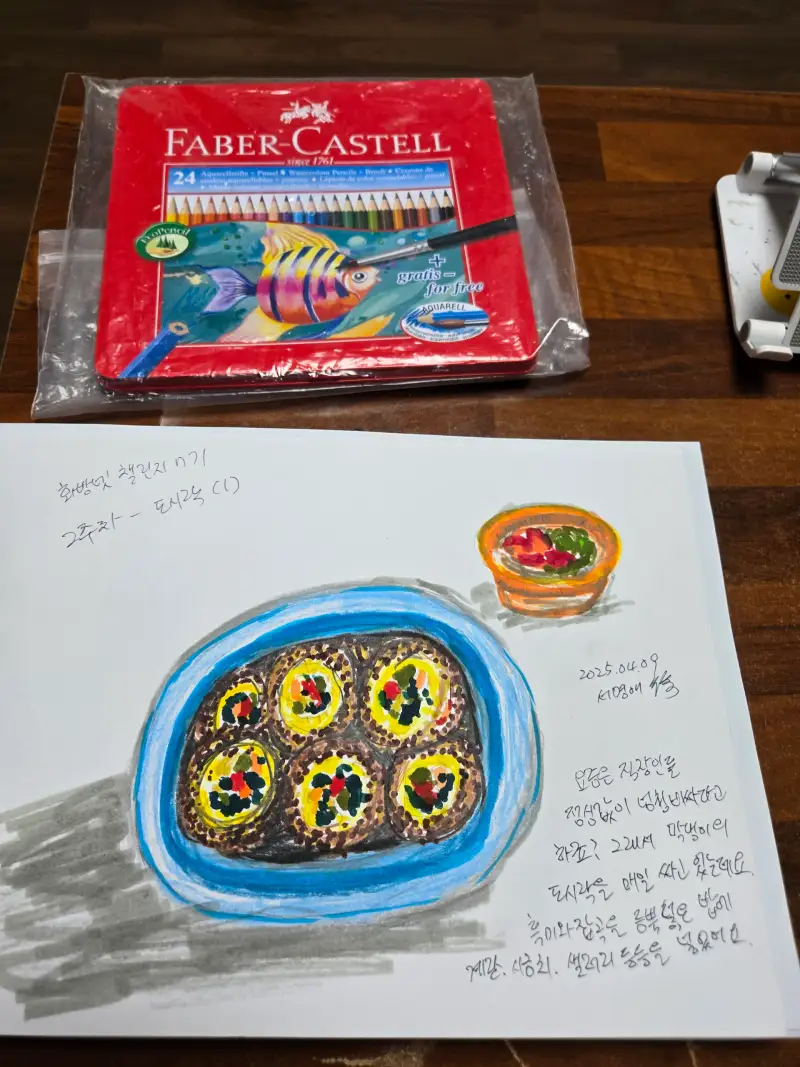 FABER-CASTELL
since 1761
24 Aquarellstifte + Pinsel Watercolour Pencils + Brush Crayons de
EcoPencil
+
gratis -
for free
AQUARELL
화방넷 챌린지 17기
2주차 - 도시락 (1)
2025.04.09
서명애
요즘은 직장인들
점심값이 엄청 비싸다고
하죠? 그래서 막냉이의
도시락을 매일 싸고 있는데요
흑미와 잡곡을 듬뿍 넣은 밥에
계란, 시금치, 샐러리 등등을 넣었어요.